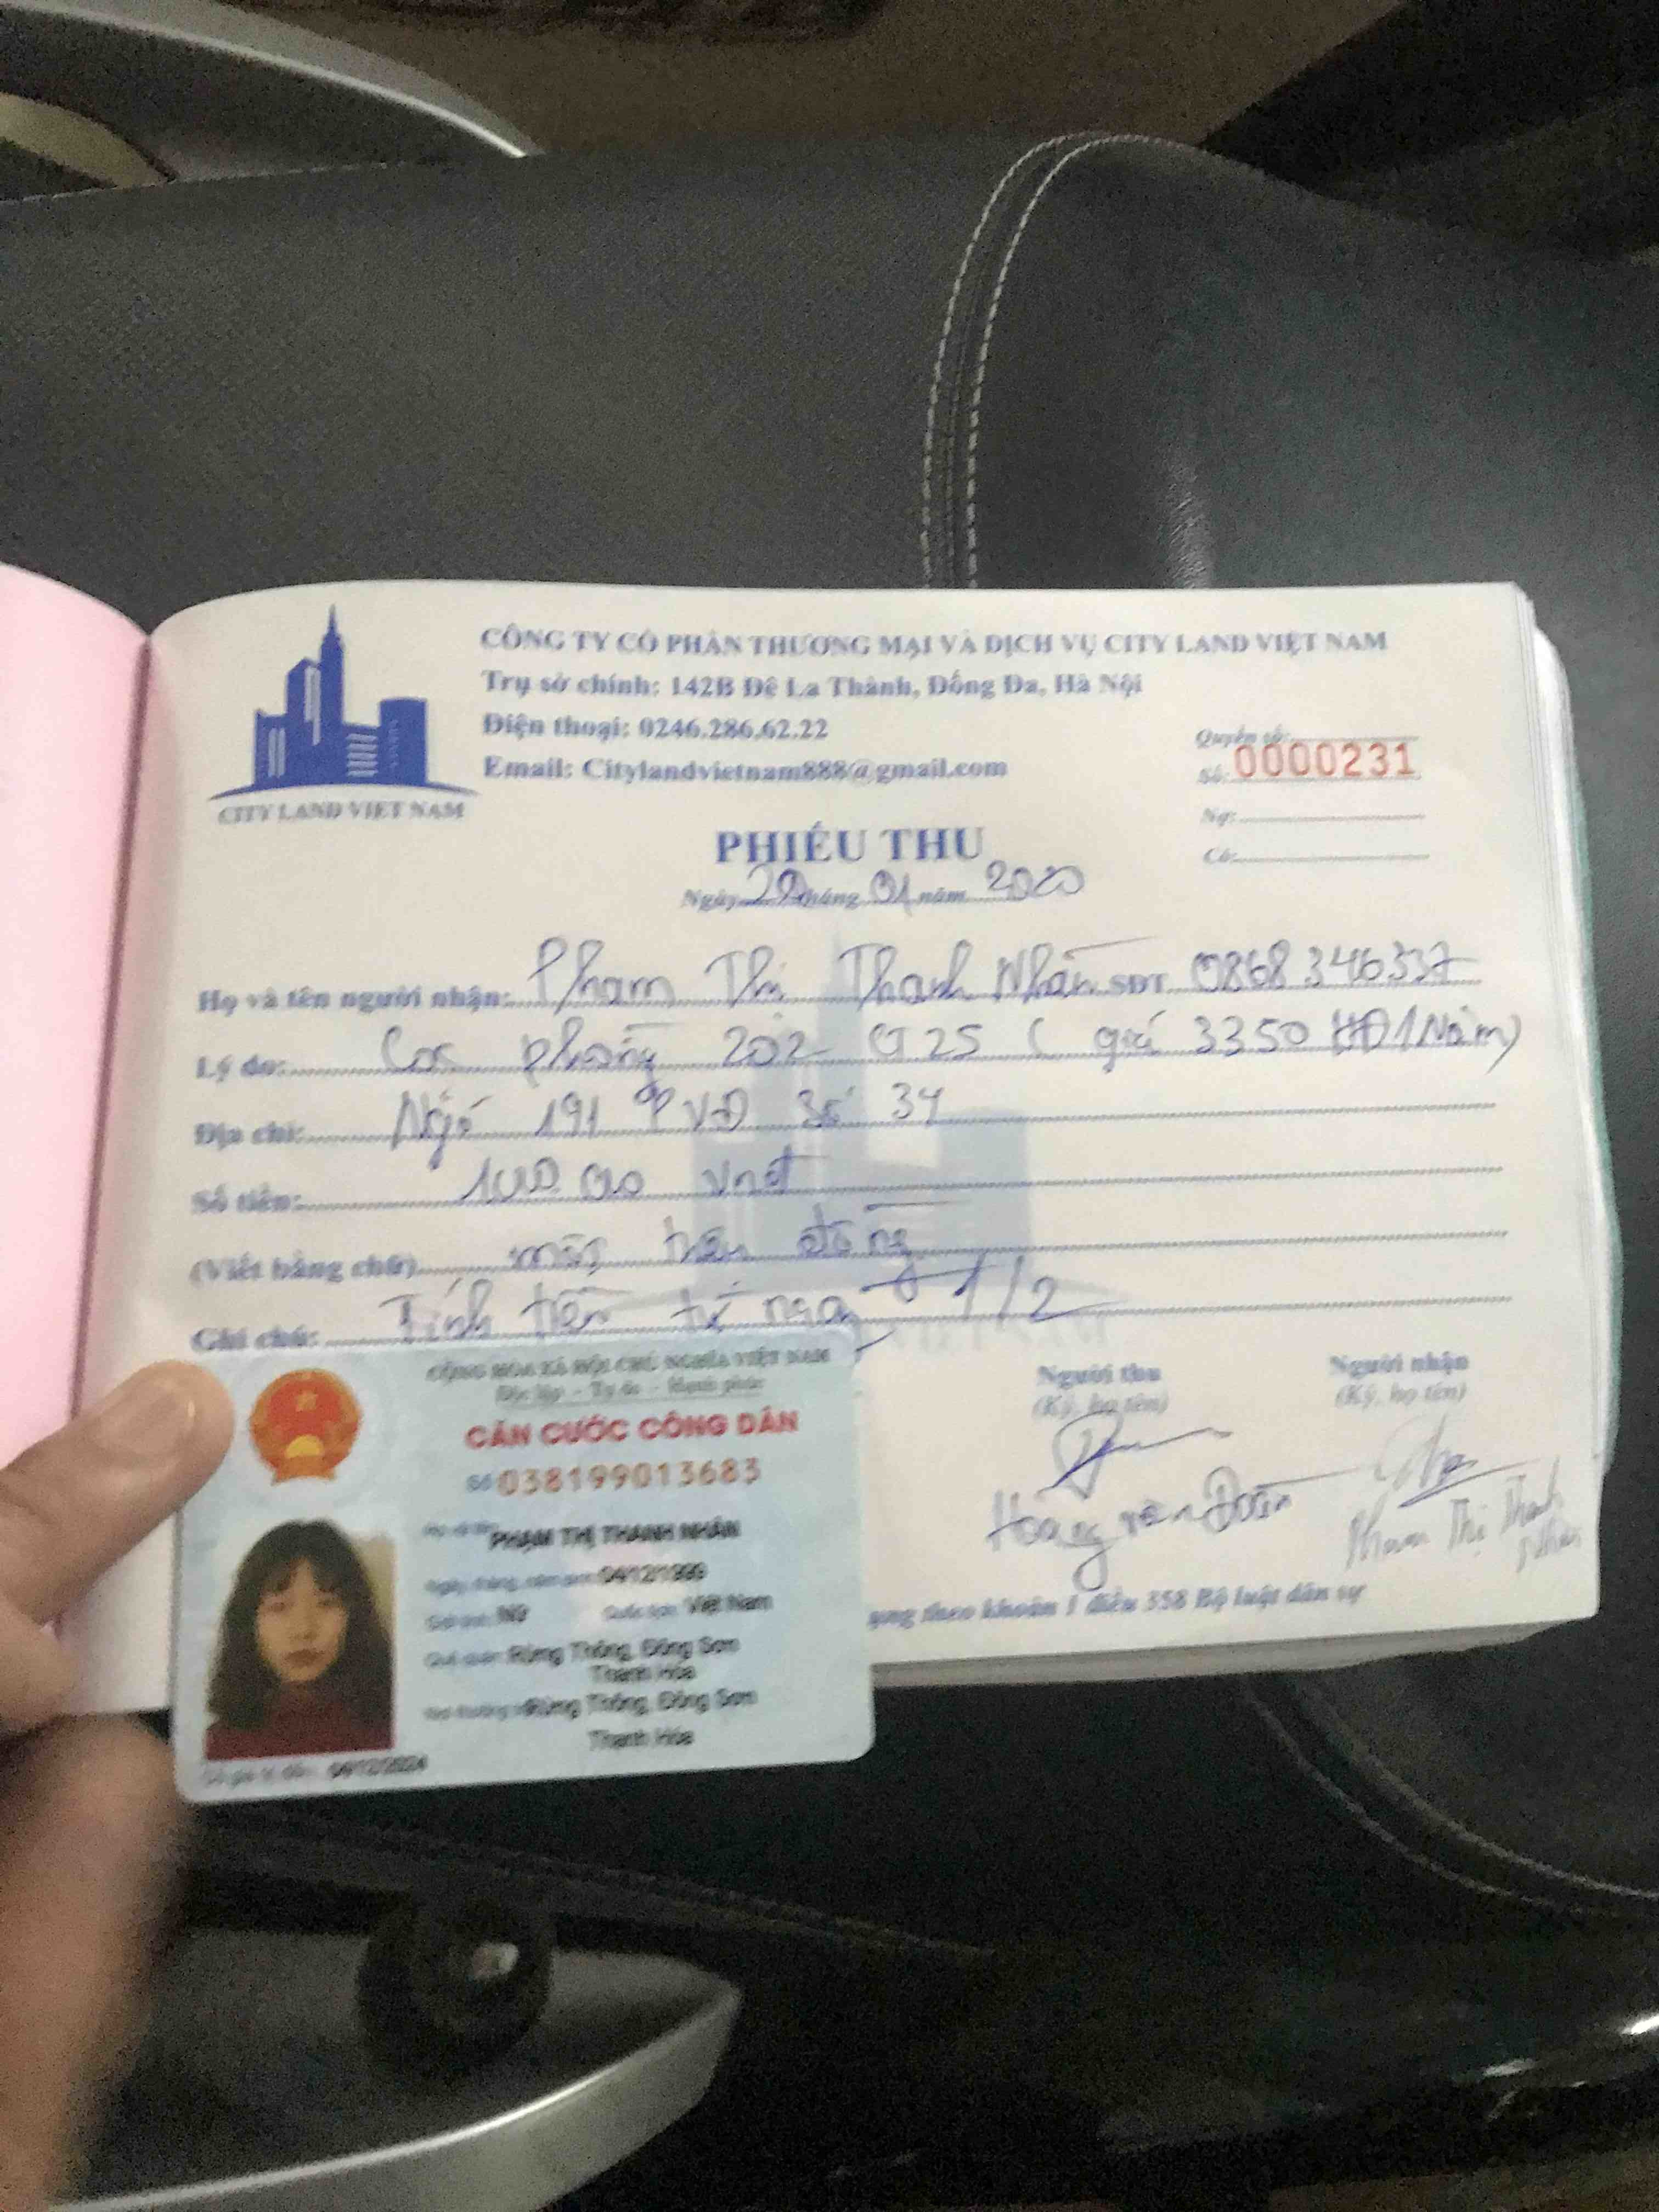 CÔNG TY CỔ PHẦN THƯƠNG MẠI VÀ DỊCH VỤ CITY LAND VIỆT NAM
Trụ sở chính: 142B Đê La Thành, Đống Đa, Hà Nội
Điện thoại: 0246.286.62.22
Email: Citylandvietnam888@gmail.com
CITY LAND VIET NAM
Quyển số:
Số: 0000231
Nợ:
Có:
PHIẾU THU
Ngày tháng 01 năm 2020
Họ và tên người nhận: Phạm Thị Thanh Nhàn SĐT 0868 346337
Lý do: Cọc phòng 202 (giá 3350 HĐ 1 Năm)
Địa chỉ: Ngõ 191 PVĐ số 34
Số tiền: vnđ
(Viết bằng chữ) một triệu đồng
Ghi chú: Tính tiền từ ngày 1/2
Người thu
(Ký, họ tên)
Hoàng văn Đoàn
Người nhận
(Ký, họ tên)
Phạm Thị Thanh
Nhàn
ụng theo khoản 1 điều 358 Bộ luật dân sự
CỘNG HÒA XÃ HỘI CHỦ NGHĨA VIỆT NAM
Độc lập - Tự do - Hạnh phúc
CĂN CƯỚC CÔNG DÂN
Số 038199013683
Họ và tên: PHẠM THỊ THANH NHÀN
Ngày, tháng, năm sinh: 04/12/1999
Giới tính: Nữ Quốc tịch: Việt Nam
Quê quán: Rừng Thông, Đông Sơn
Thanh Hóa
Nơi thường trú: Rừng Thông, Đông Sơn
Thanh Hóa
Có giá trị đến: 04/12/2024